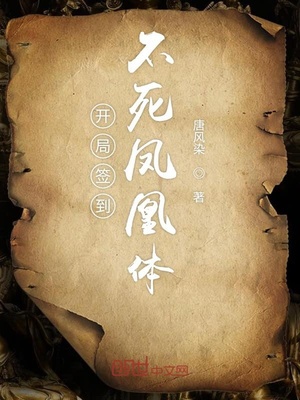 开局签到
不死凤凰体
唐风染 ◎ 著
中文网